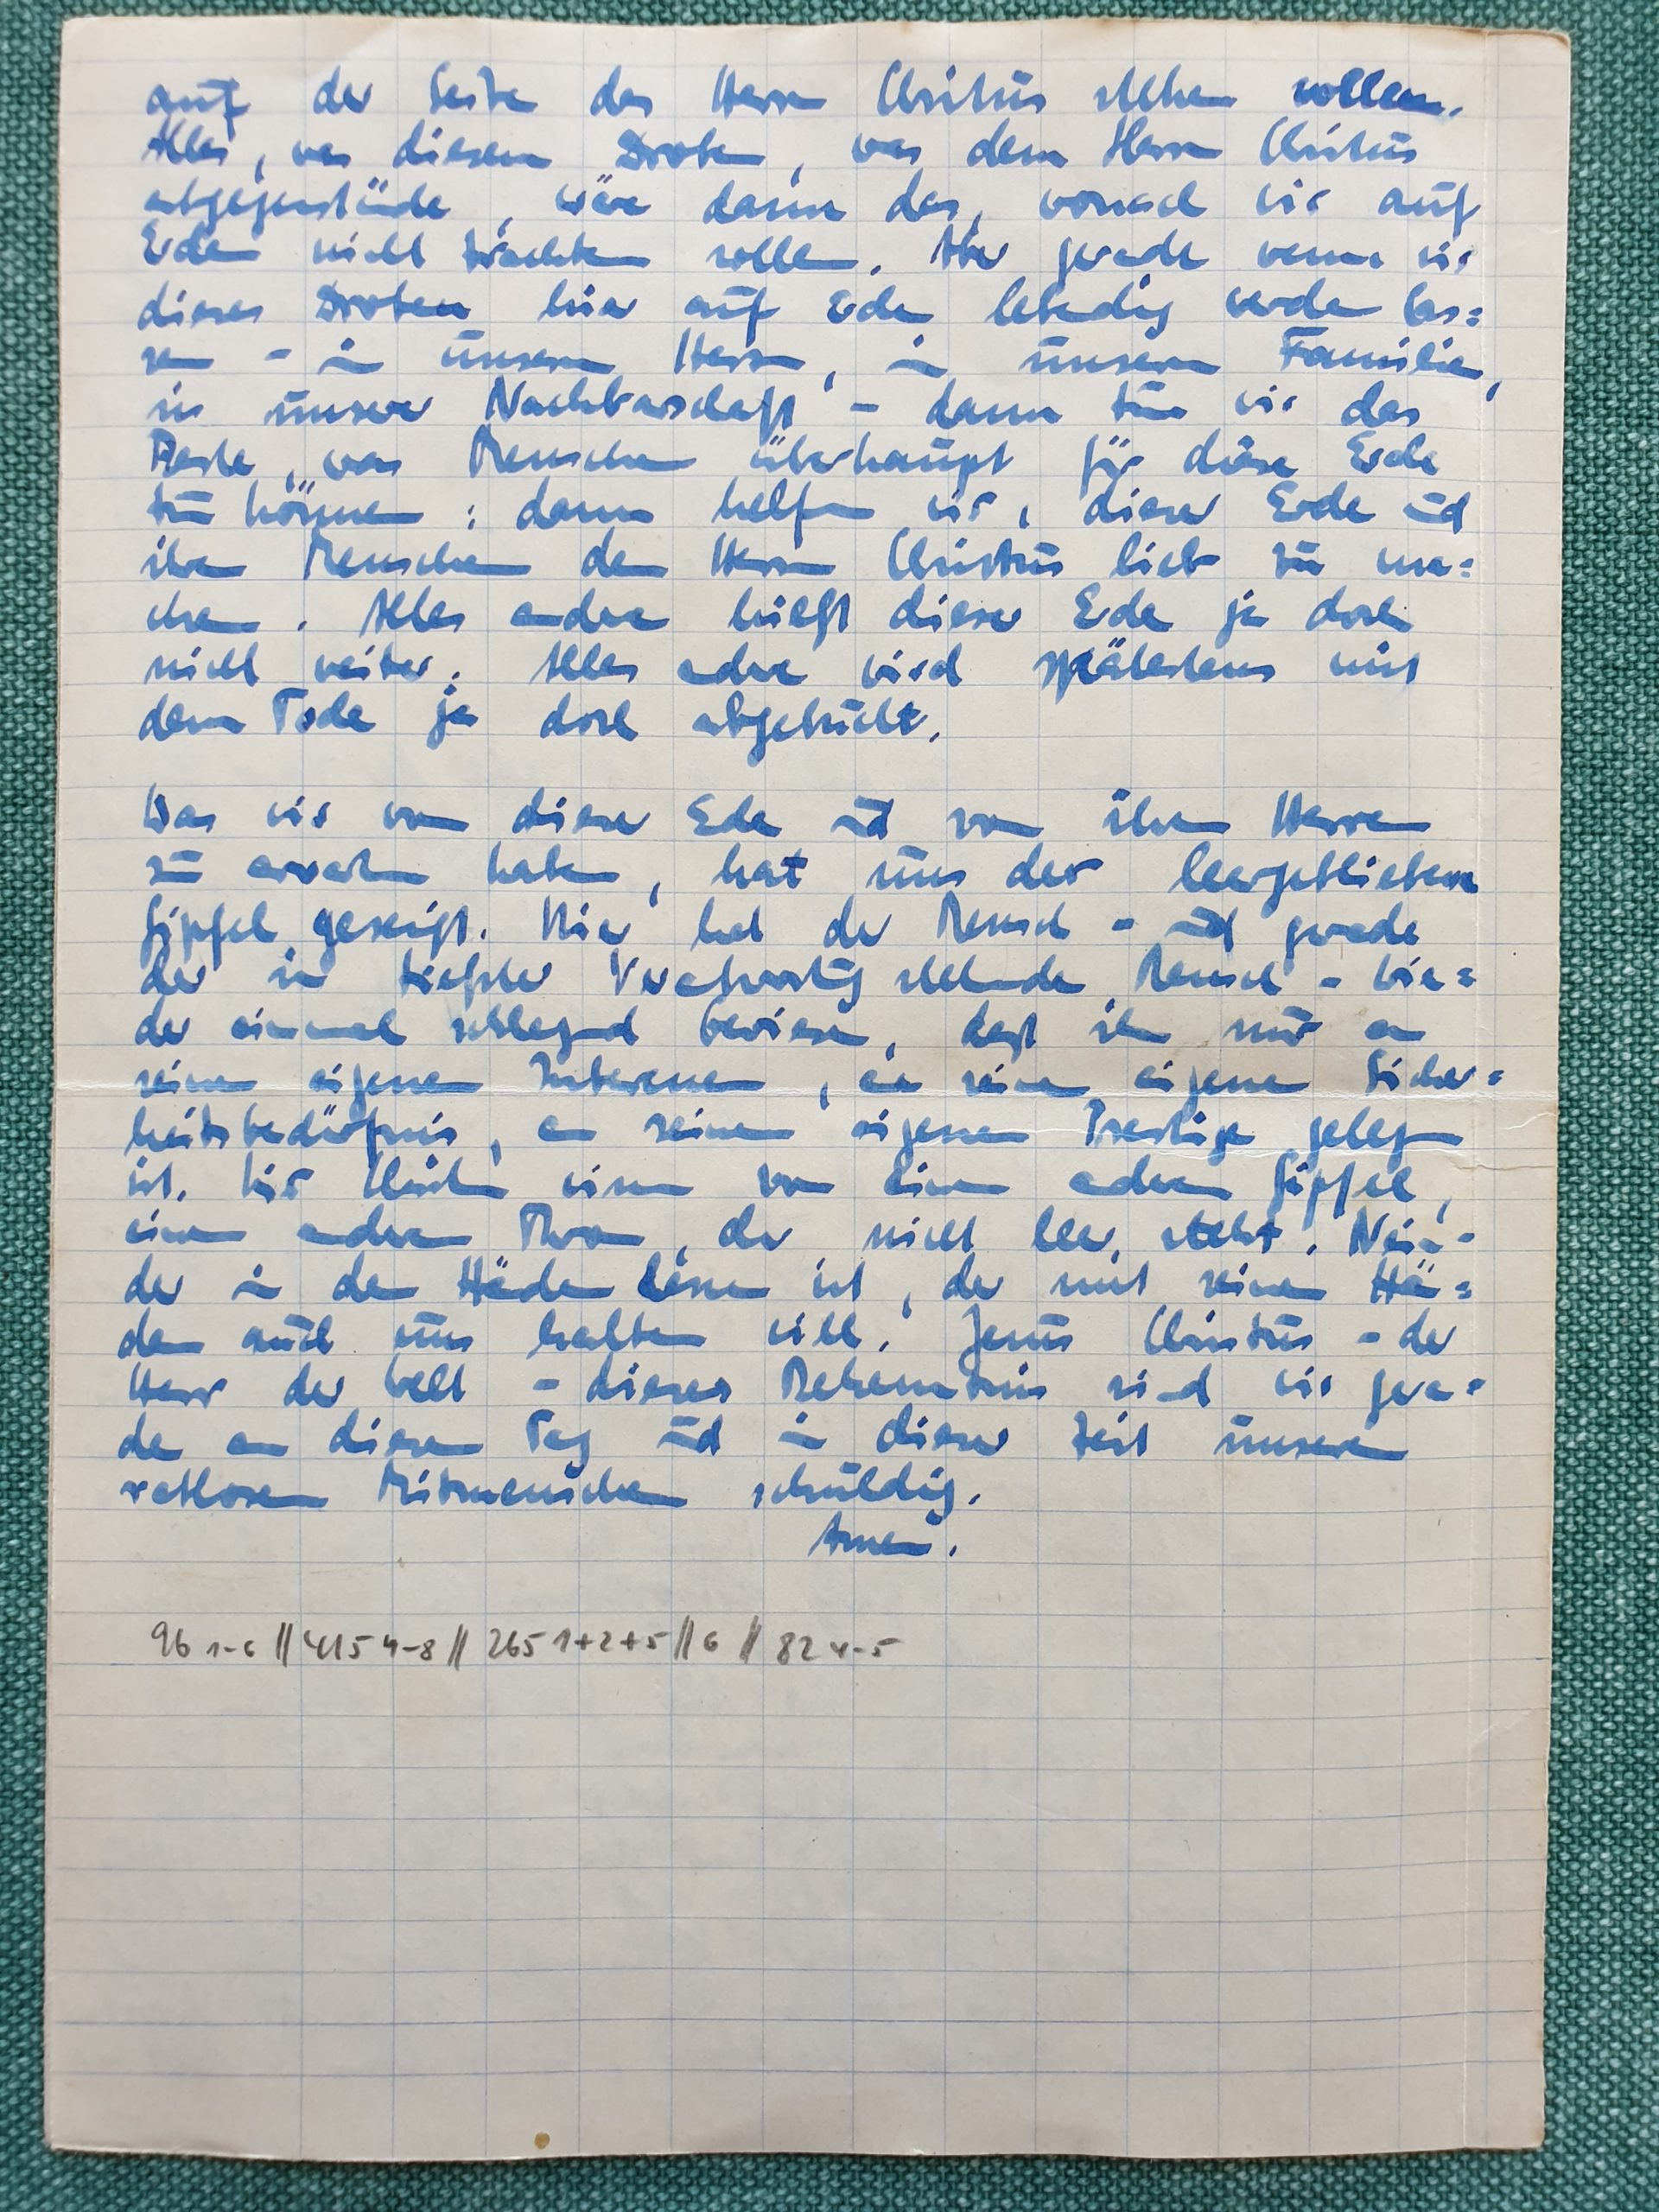 auf der Seite des Herrn Christus stehen wollen.
Alles, was diesem Droben, was dem Herrn Christus
entgegenstünde, wäre dann das, wonach wir auf
Erden nicht trachten sollen. Aber gerade wenn wir
dieses Droben hier auf Erden lebendig werden las=
sen - in unserm Herzen, in unserer Familie,
in unserer Nachbarschaft - dann tun wir das
Beste, was Menschen überhaupt für diese Erde
tun können: dann helfen wir, dieser Erde und
ihren Menschen den Herrn Christus lieb zu ma=
chen. Alles andere hilft dieser Erde ja doch
nicht weiter. Alles andere wird spätestens mit
dem Tode ja doch
Was wir von dieser Erde und von ihren Herren
zu erwarten haben, hat uns der leergebliebene
Gipfel gezeigt. Hier hat der Mensch - und gerade
der in tiefster Verantwortung stehende Mensch - wie=
der einmal schlagend bewiesen, daß ihm nur an
seinen eigenen Interessen, an seinem eigenen Sicher=
heitsbedürfnis, an seinem eigenen Prestige gelegen
ist. Wir Christen wissen von einem andern Gipfel,
einem andern Thron, der nicht leer steht.
der in den Händen dessen ist, der mit seinen Hän=
den auch uns halten will. Jesus Christus - der
Herr der Welt - dieses Bekenntnis sind wir gera=
de an diesem Tag und in dieser Zeit unseren
ratlosen Mitmenschen schuldig.
Amen.
96 1-6 || 415 4-8 || 265 1+2+5 || 6 || 82 4-5